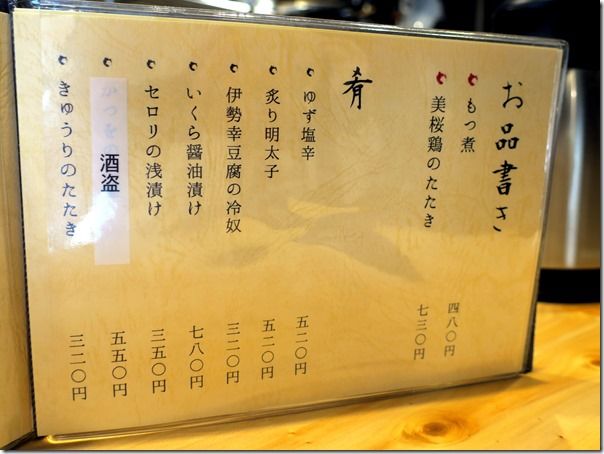 お品書き
もつ煮 四八〇円
美桜鶏のたたき 七三〇円
肴
ゆず塩辛 五二〇円
炙り明太子 五二〇円
伊勢幸豆腐の冷奴 三二〇円
いくら醤油漬け 七八〇円
セロリの浅漬け 三五〇円
酒盗 五五〇円
きゅうりのたたき 三二〇円